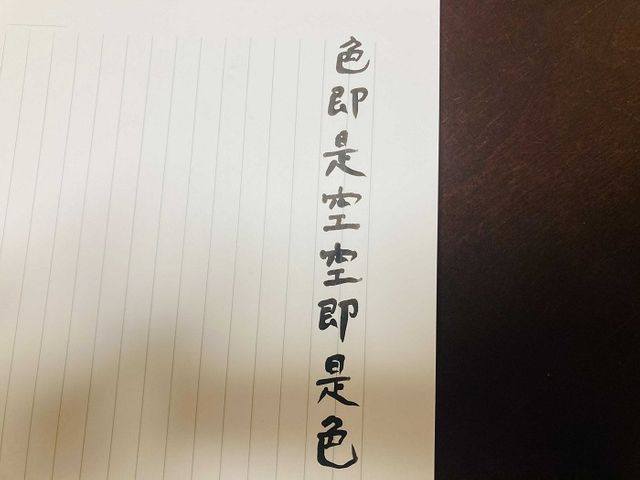 色即是空空即是色